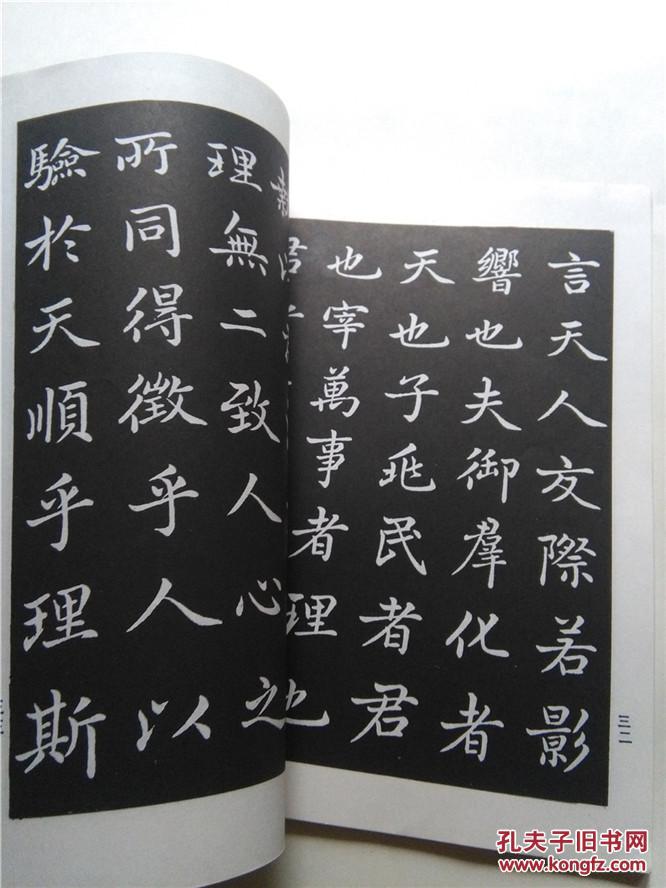 言天人交際若影
響也夫御羣化者
天也子兆民者君
也宰萬事者理也
三二
理無二致人心之
所同得徵乎人以
驗於天順乎理斯
孔夫子旧书网
www.kongfz.com